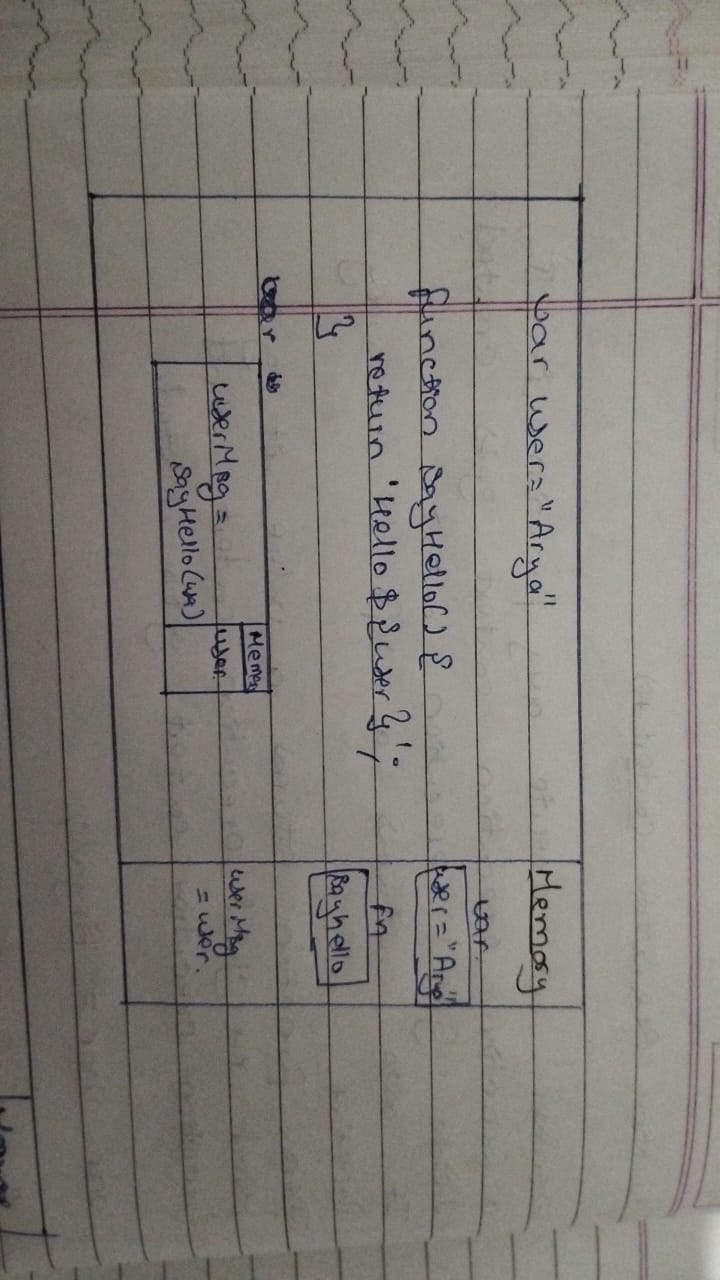 var user = "Arya"
function sayHello() {
return 'Hello ${user}';
}
var
userMsg =
sayHello(
user
Memory
var
user = "Arya"
fn
sayhello
userMsg
= user.